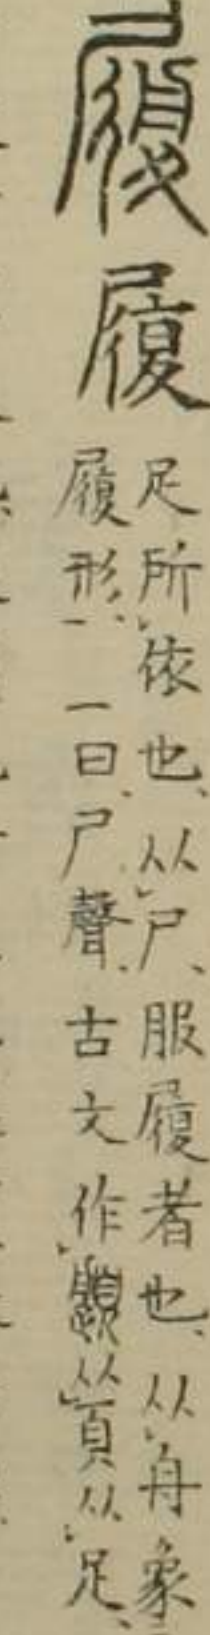 履 履
足所依也从尸服履者也从舟象
履形一曰尸聲古文作𩕍从頁从足